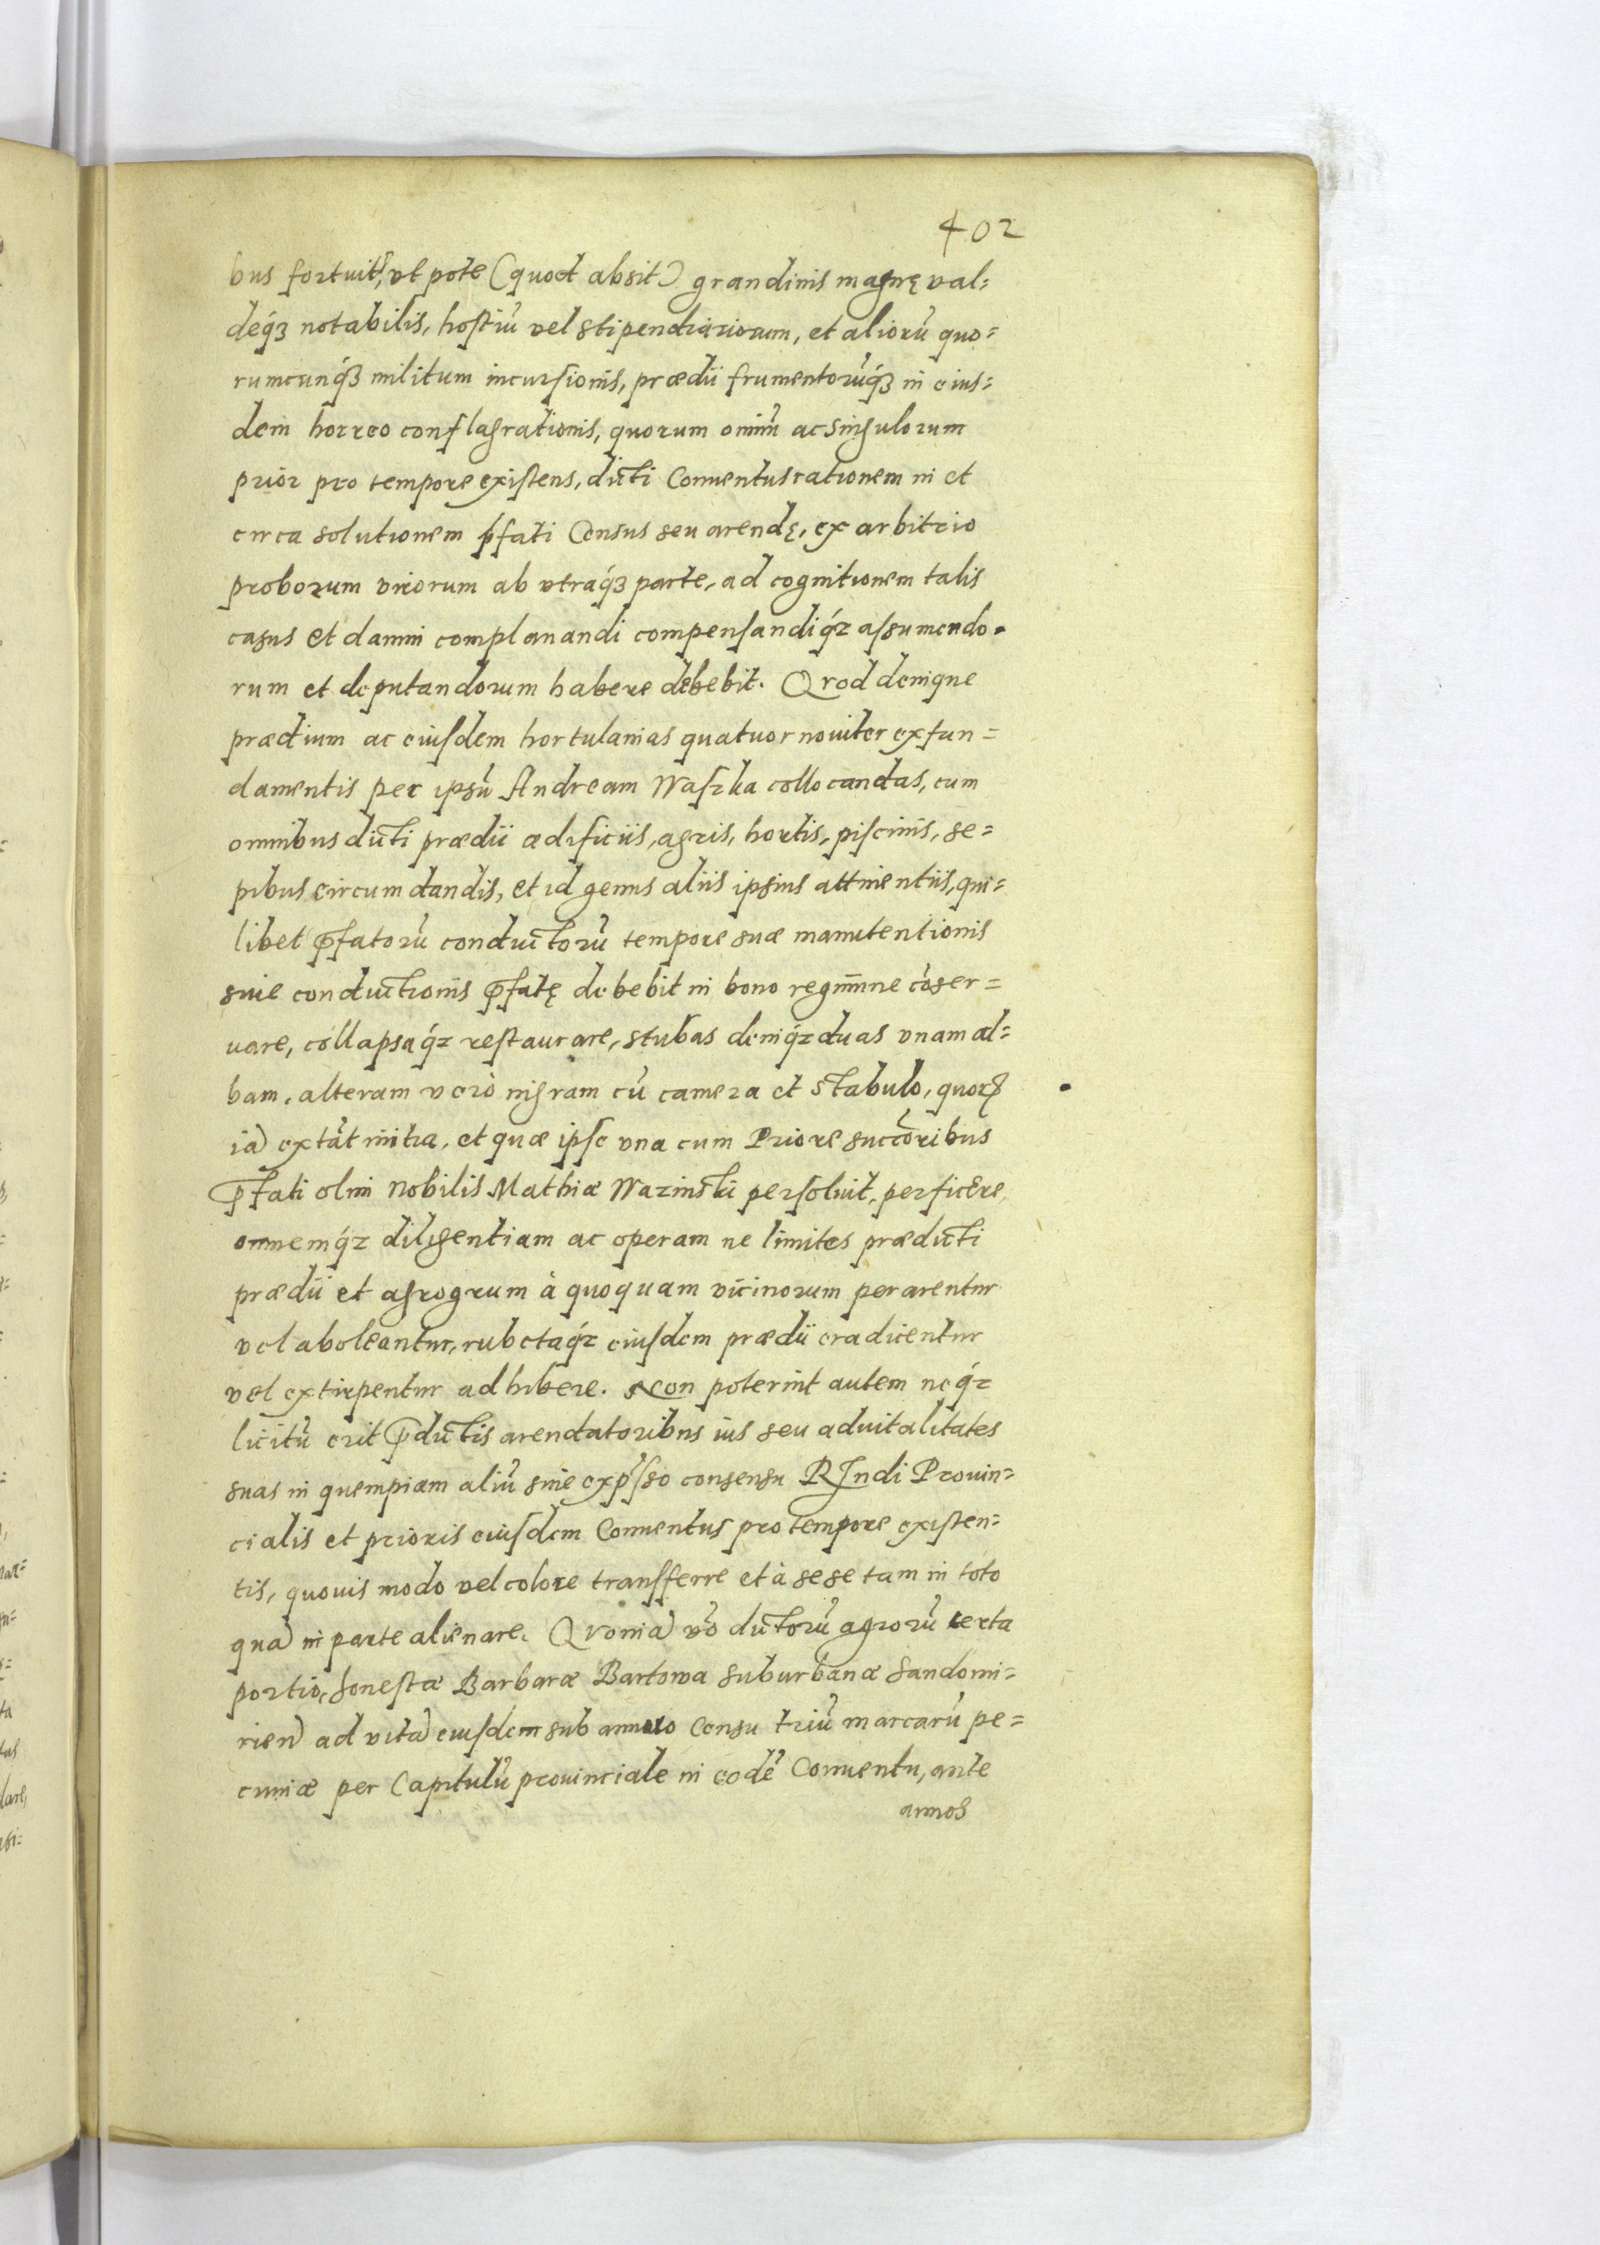 402
bus fortuit̃, vt pote (quod absit) grandinis magnę val=
deq́ꝫ notabilis, hostiũ vel stipendiariorum, et aliorũ quo=
rumcunq́ꝫ militum incursionis, prædii frumentorũq́ꝫ in eius=
dem horreo conflagrationis, quorum omniũ ac singulorum
prior pro tempore existens, dicti Conuentus rationem in et
circa solutionem p̃fati Census seu arendę, ex arbitrio
proborum virorum ab vtraq́ꝫ parte, ad cognitionem talis
casus et damni complanandi compensandiq́ꝫ assumendo-
rum et deputandorum habere debebit. Quod denique
prædium ac eiusdem hortulanias quatuor nouiter ex fun=
damentis per ipsũ Andream Waszka collocandas, cum
omnibus dicti prædii ædificiis, agris, hortis, piscinis, se=
pibus circumdandis, et id genus aliis ipsius attinentiis, qui=
libet p̃fatorũ conductorũ tempore suæ manutentionis
siue conductionis p̃fatę debebit in bono regimine cõser=
uare, collapsaq́ꝫ restaurare, stubas deniq́ꝫ duas vnam al=
bam, alteram verò nigram cũ camera et stabulo, quorꝝ
iã extãt initia, et quæ ipse vna cum Priore succõribus
p̃fati olim Nobilis Mathiæ Wazinski persoluit, perficere,
omnemq́ꝫ diligentiam ac operam ne limites prædicti
prædii et agrogrum à quoquam vicinorum perarentur
vel aboleantur, rubetaq́ꝫ eiusdem prædii eradicentur
vel extirpentur adhibere. Non poterint autem neq́ꝫ
licitũ erit p̃dictis arendatoribus ius seu aduitalitates
suas in quempiam aliũ sine exp̃sso consensu R̃ndi Prouin=
cialis et prioris eiusdem Conuentus pro tempore existen=
tis, quouis modo vel colore transferre et à sese tam in toto
quã in parte alienare. Quoniã võ dictorũ agrorũ certa
portio, honestæ Barbaræ Bartowa suburbanæ Sandomi=
rieñ ad vitã eiusdem sub annuo Censu triũ marcarũ pe=
cuniæ per Capitulũ prouinciale in eodẽ Conuentu, ante
annos